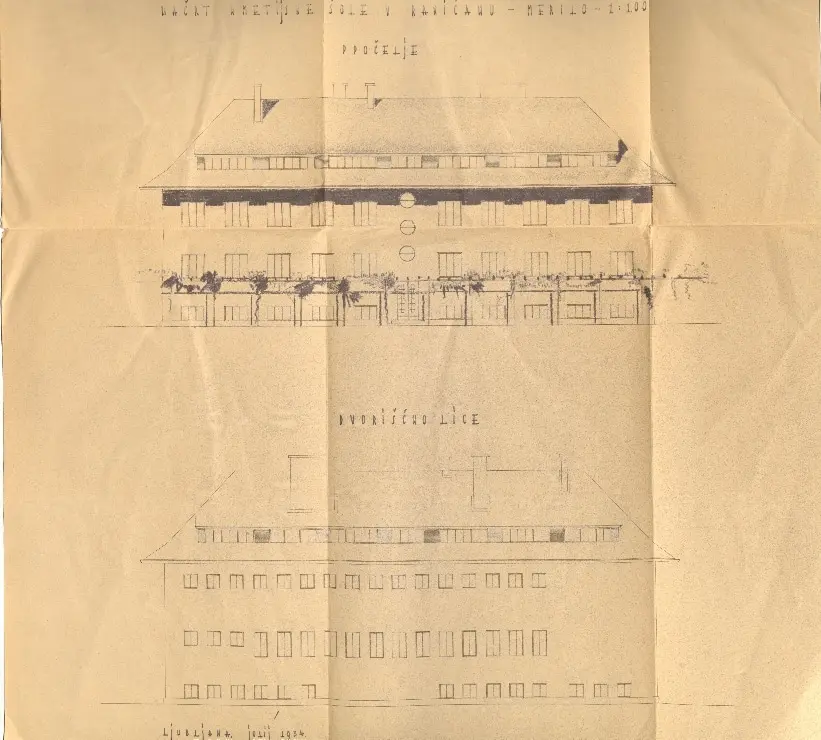 NAČRT KMETIJSKE ŠOLE V RAKIČANU - MERILO - 1:100
PROČELJE
DVORIŠČNO LICE
LJUBLJANA, JULIJ 1924